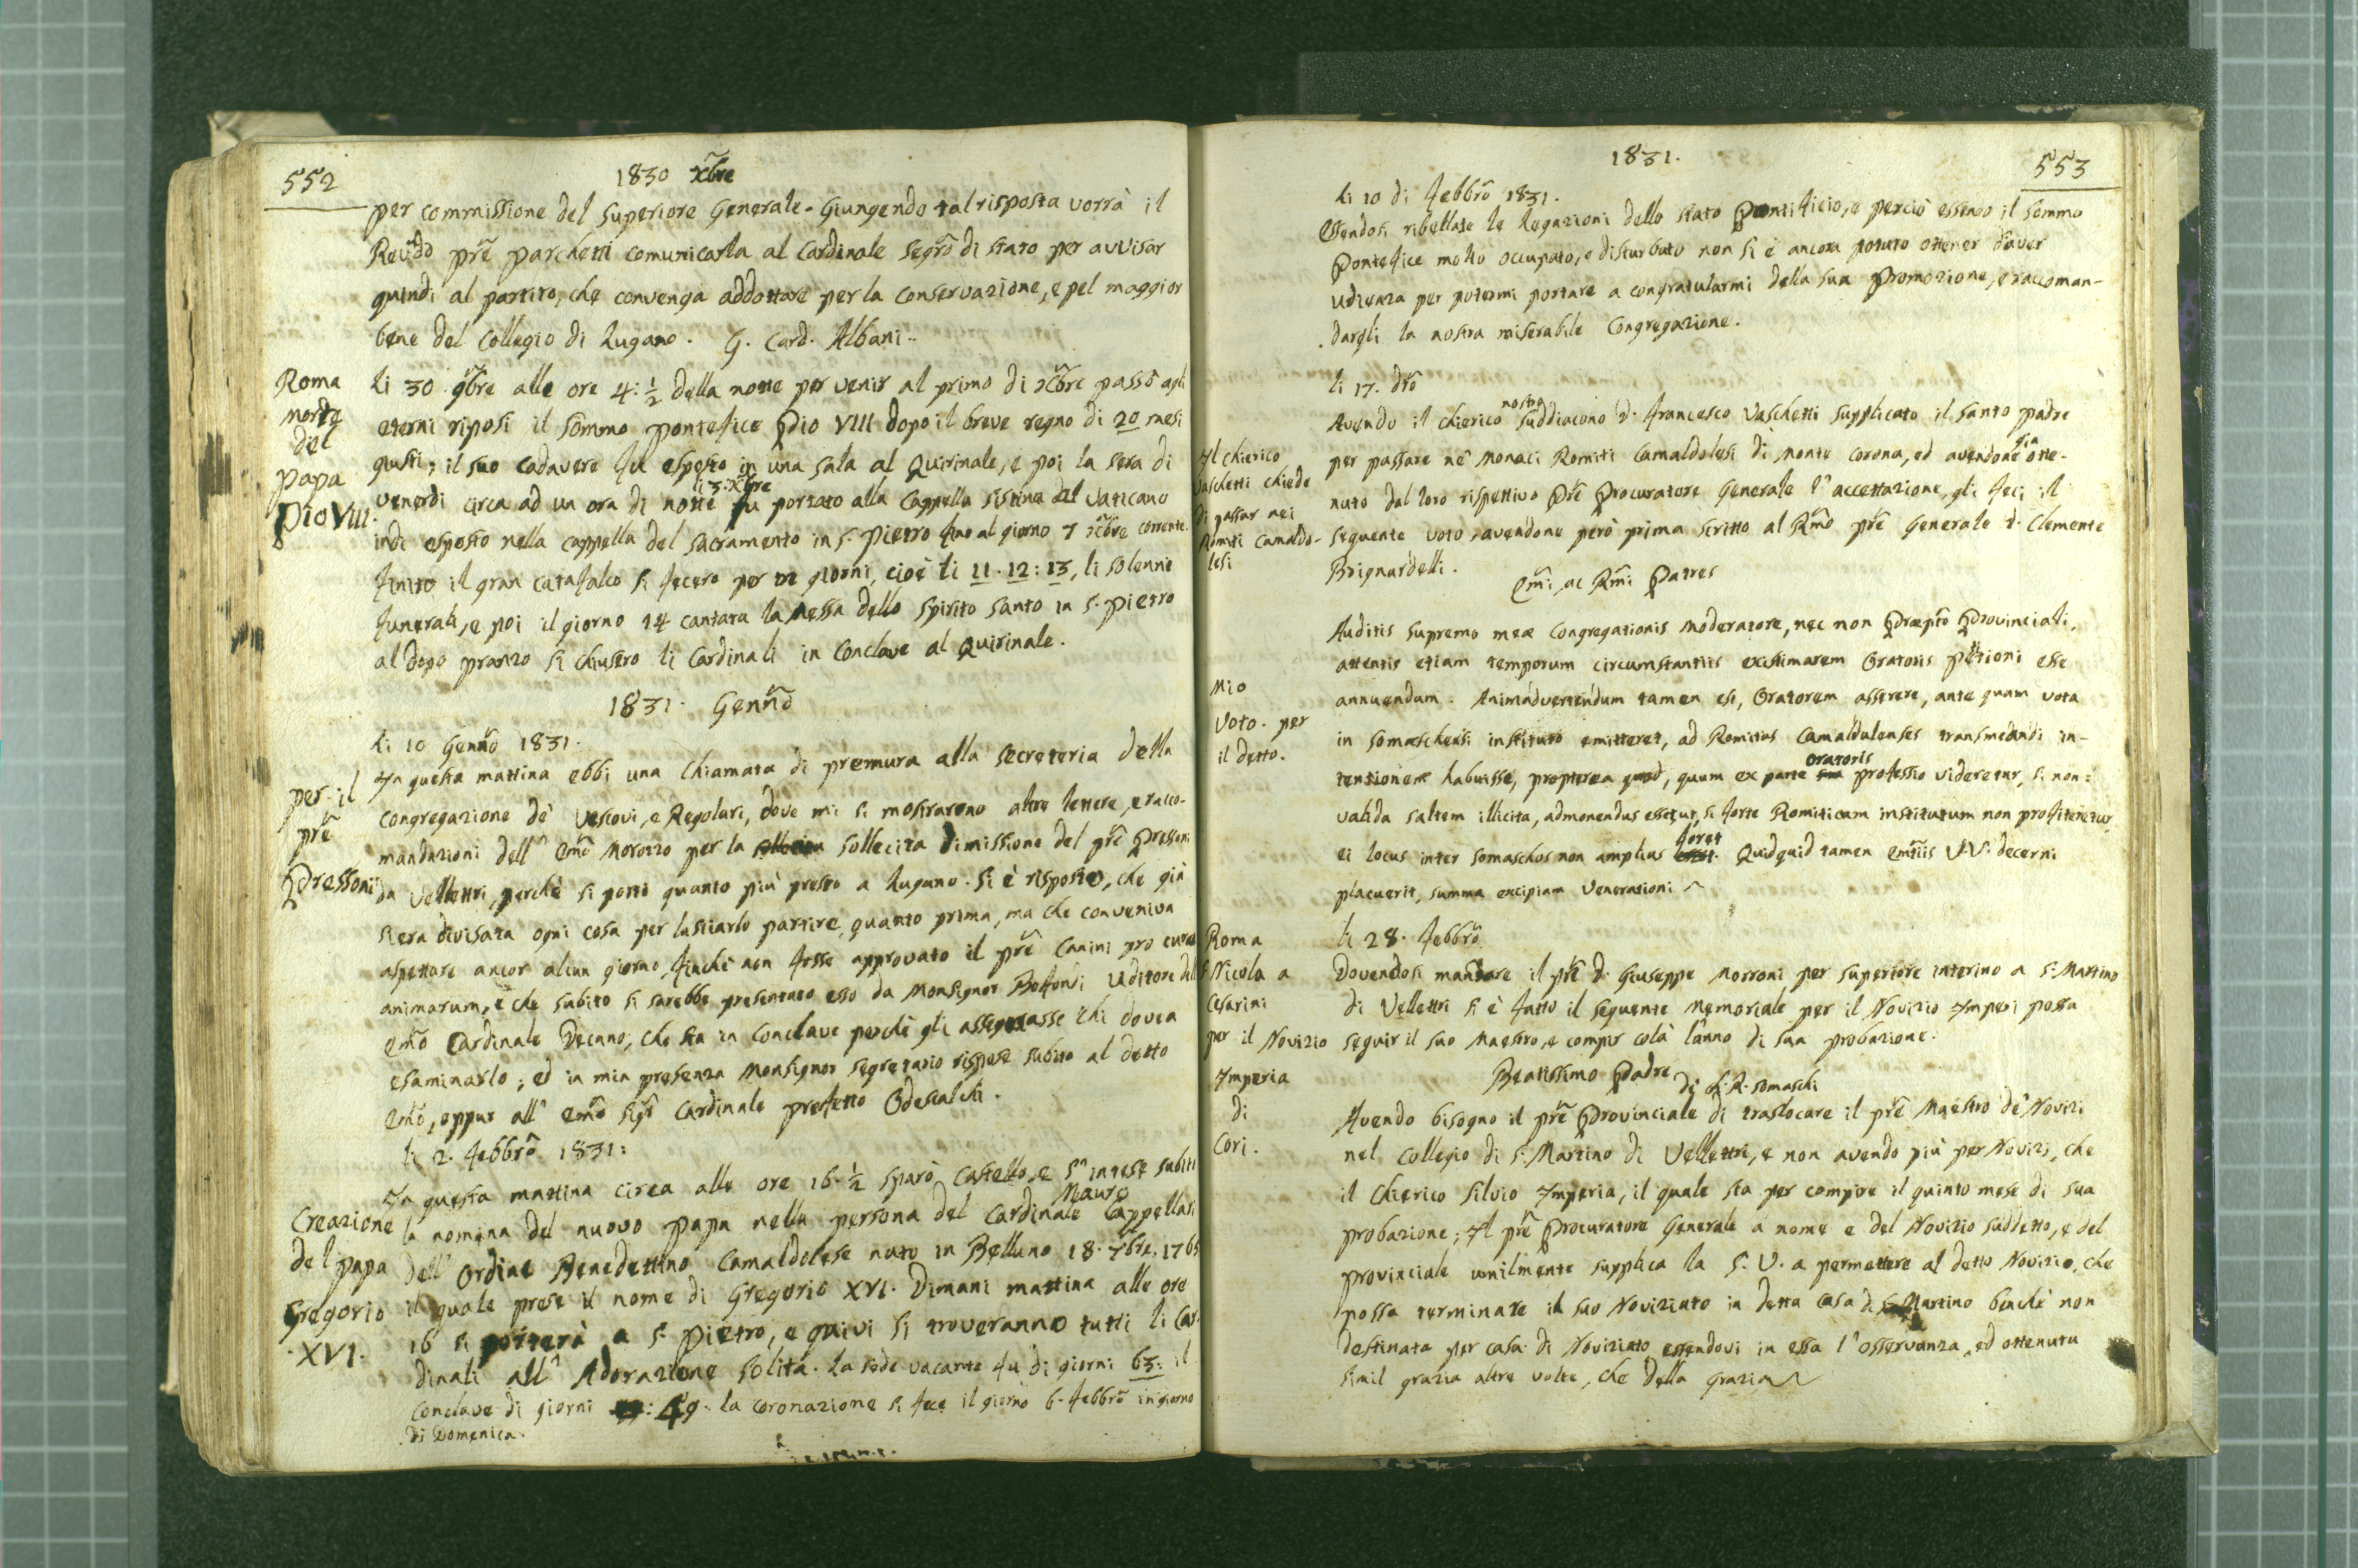 552
1830 Xbre
per commissione del Superiore Generale. Giungendo tal risposta vorrà il
Revdo pre Parchetti comunicarla al Cardinale Segro di Stato per avvisar
quindi al partito, che convenga addottare per la conservazione, e pel maggior
bene del Collegio di Lugano. G. Card. Albani..
Roma
morte
del
Papa
Pio VIII.
Li 30 9bre alle ore 4: 1/2 della notte per venir al primo di Xbre passò agli
eterni riposi il Sommo Pontefice Pio VIII dopo il breve regno di 20 mesi
giusti; il suo cadavere fu esposto in una sala al Quirinale, e poi la sera di
li 3. Xbre
venerdi circa ad un ora di notte fu portato alla Cappella Sistina del Vaticano
indi esposto nella cappella del Sacramento in S. Pietro fino al giorno 7 Xbre corrente.
Finito il gran catafalco si fecero per tre giorni, cioè li 11. 12: 13, li solenni
funerali, e poi il giorno 14 cantata la Messa dello Spirito Santo in S. Pietro
al dopo pranzo si chiusero li Cardinali in Conclave al Quirinale.
1831. Genno
Li 10 Genno 1831.
per il
pre
Pressoni
In questa mattina ebbi una Chiamata di premura alla Secreteria della
Congregazione de' Vescovi, e Regolari, dove mi si mostrarono altre lettere, e racco-
mandazioni dell' Emo Morozzo per la sollecita dimissione del pre Pressoni
da Vellettri, perchè si porti quanto più presto a Lugano. Si è risposto, che già
si era divisata ogni cosa per lasciarlo partire, quanto prima, ma che conveniva
aspettare ancor alcun giorno, finchè non fosse approvato il pre Canini pro cura
animarum, e che subito si sarebbe presentato esso da Monsignor Boffondi Uditore del
Emo Cardinale Decano, che sta in Conclave perchè gli assegnasse chi dovea
esaminarlo; ed in mia presenza Monsignor Segretario rispose subito al detto
Emo, oppur all' Emo Sigr Cardinale prefetto Odescalchi.
li 2. Febbro 1831:
Creazione
del Papa
Gregorio
XVI.
In questa mattina circa alle ore 16. 1/2 sparò Castello, e s' intese subito
Mauro
la nomina del nuovo Papa nella persona del Cardinale Cappellari
dell' Ordine Benedettino Camaldolese nato in Belluno 18. 7bre. 1765
il quale prese il nome di Gregorio XVI. Dimani mattina alle ore
16 si porterà a S. Pietro, e quivi si troveranno tutti li Car-
dinali all' Adorazione solita. La sede vacante fu di giorni 63: il
Conclave di giorni : 49. la coronazione si fece il giorno 6. Febbro in giorno
di Domenica.
1831.
553
li 10 di Febbro 1831.
Essendosi ribellate le Legazioni dello Stato Pontificio, e perciò essendo il Sommo
Pontefice molto occupato, e disturbato non si è ancora potuto ottener d'aver
udienza per potermi portare a congratularmi della sua Promozione, e raccoman-
dargli la nostra miserabile Congregazione.
li 17. dto
Il Chierico
Vaschetti chiede
di passar nei
Romiti Camaldo-
lesi
nostro
Avendo il chierico Suddiacono D. Francesco Vaschetti supplicato il Santo Padre
per passare ne' Monaci Romiti Camaldolesi di Monte Corona, ed avendone già otte-
nuto dal loro rispettivo Pre Procuratore Generale l' accettazione, gli feci il
seguente voto, avendone però prima scritto al Rmo pre Generale D. Clemente
Brignardelli.
Emi, ac Rmi Patres
Mio
Voto. per
il detto.
Auditis supremo meae Congregationis Moderatore, nec non Praepto Provinciali,
attentis etiam temporum circumstantiis existimarem Oratoris petitioni esse
annuendum. Animadvertendum tamen est, Oratorem asserere, ante quam vota
in Somaschensi instituto emitteret, ad Romitas Camaldulenses transmeandi in-
oratoris
tentionem habuisse, propterea quod, quum ex parte sua professio videretur, si non:
valida saltem illicita, admonendus essetur, si forte Romiticum institutum non profiteretur,
foret
ei locus inter Somaschos non amplius esset. Quidquid tamen Emtiis V.V. decerni
placuerit, summa excipiam Venerationi
Roma
S. Nicola a
Cesarini
per il Novizio
Imperia
di
Cori.
li 28. Febbro
Dovendosi mandare il pre D. Giuseppe Morroni per superiore interino a S. Martino
di Vellettri si è fatto il seguente Memoriale per il Novizio Imperi possa
seguir il suo Maestro, e compir colà l'anno di sua probazione.
Beatissimo Padre
di C. R. Somaschi
Avendo bisogno il pre Provinciale di traslocare il pre Maestro de' Novizi
nel Collegio di S. Martino di Vellettri, e non avendo più per Novizi, che
il Chierico Silvio Imperia, il quale sta per compire il quinto mese di sua
probazione; Il pre Procuratore Generale a nome e del Novizio suddetto, e del
Provinciale umilmente supplica la S. V. a permettere al detto Novizio, che
possa terminare il suo Noviziato in detta Casa di S. Martino benchè non
destinata per casa di Noviziato essendovi in essa l' osservanza, ed ottenuta
simil grazia altre volte, che della Grazia